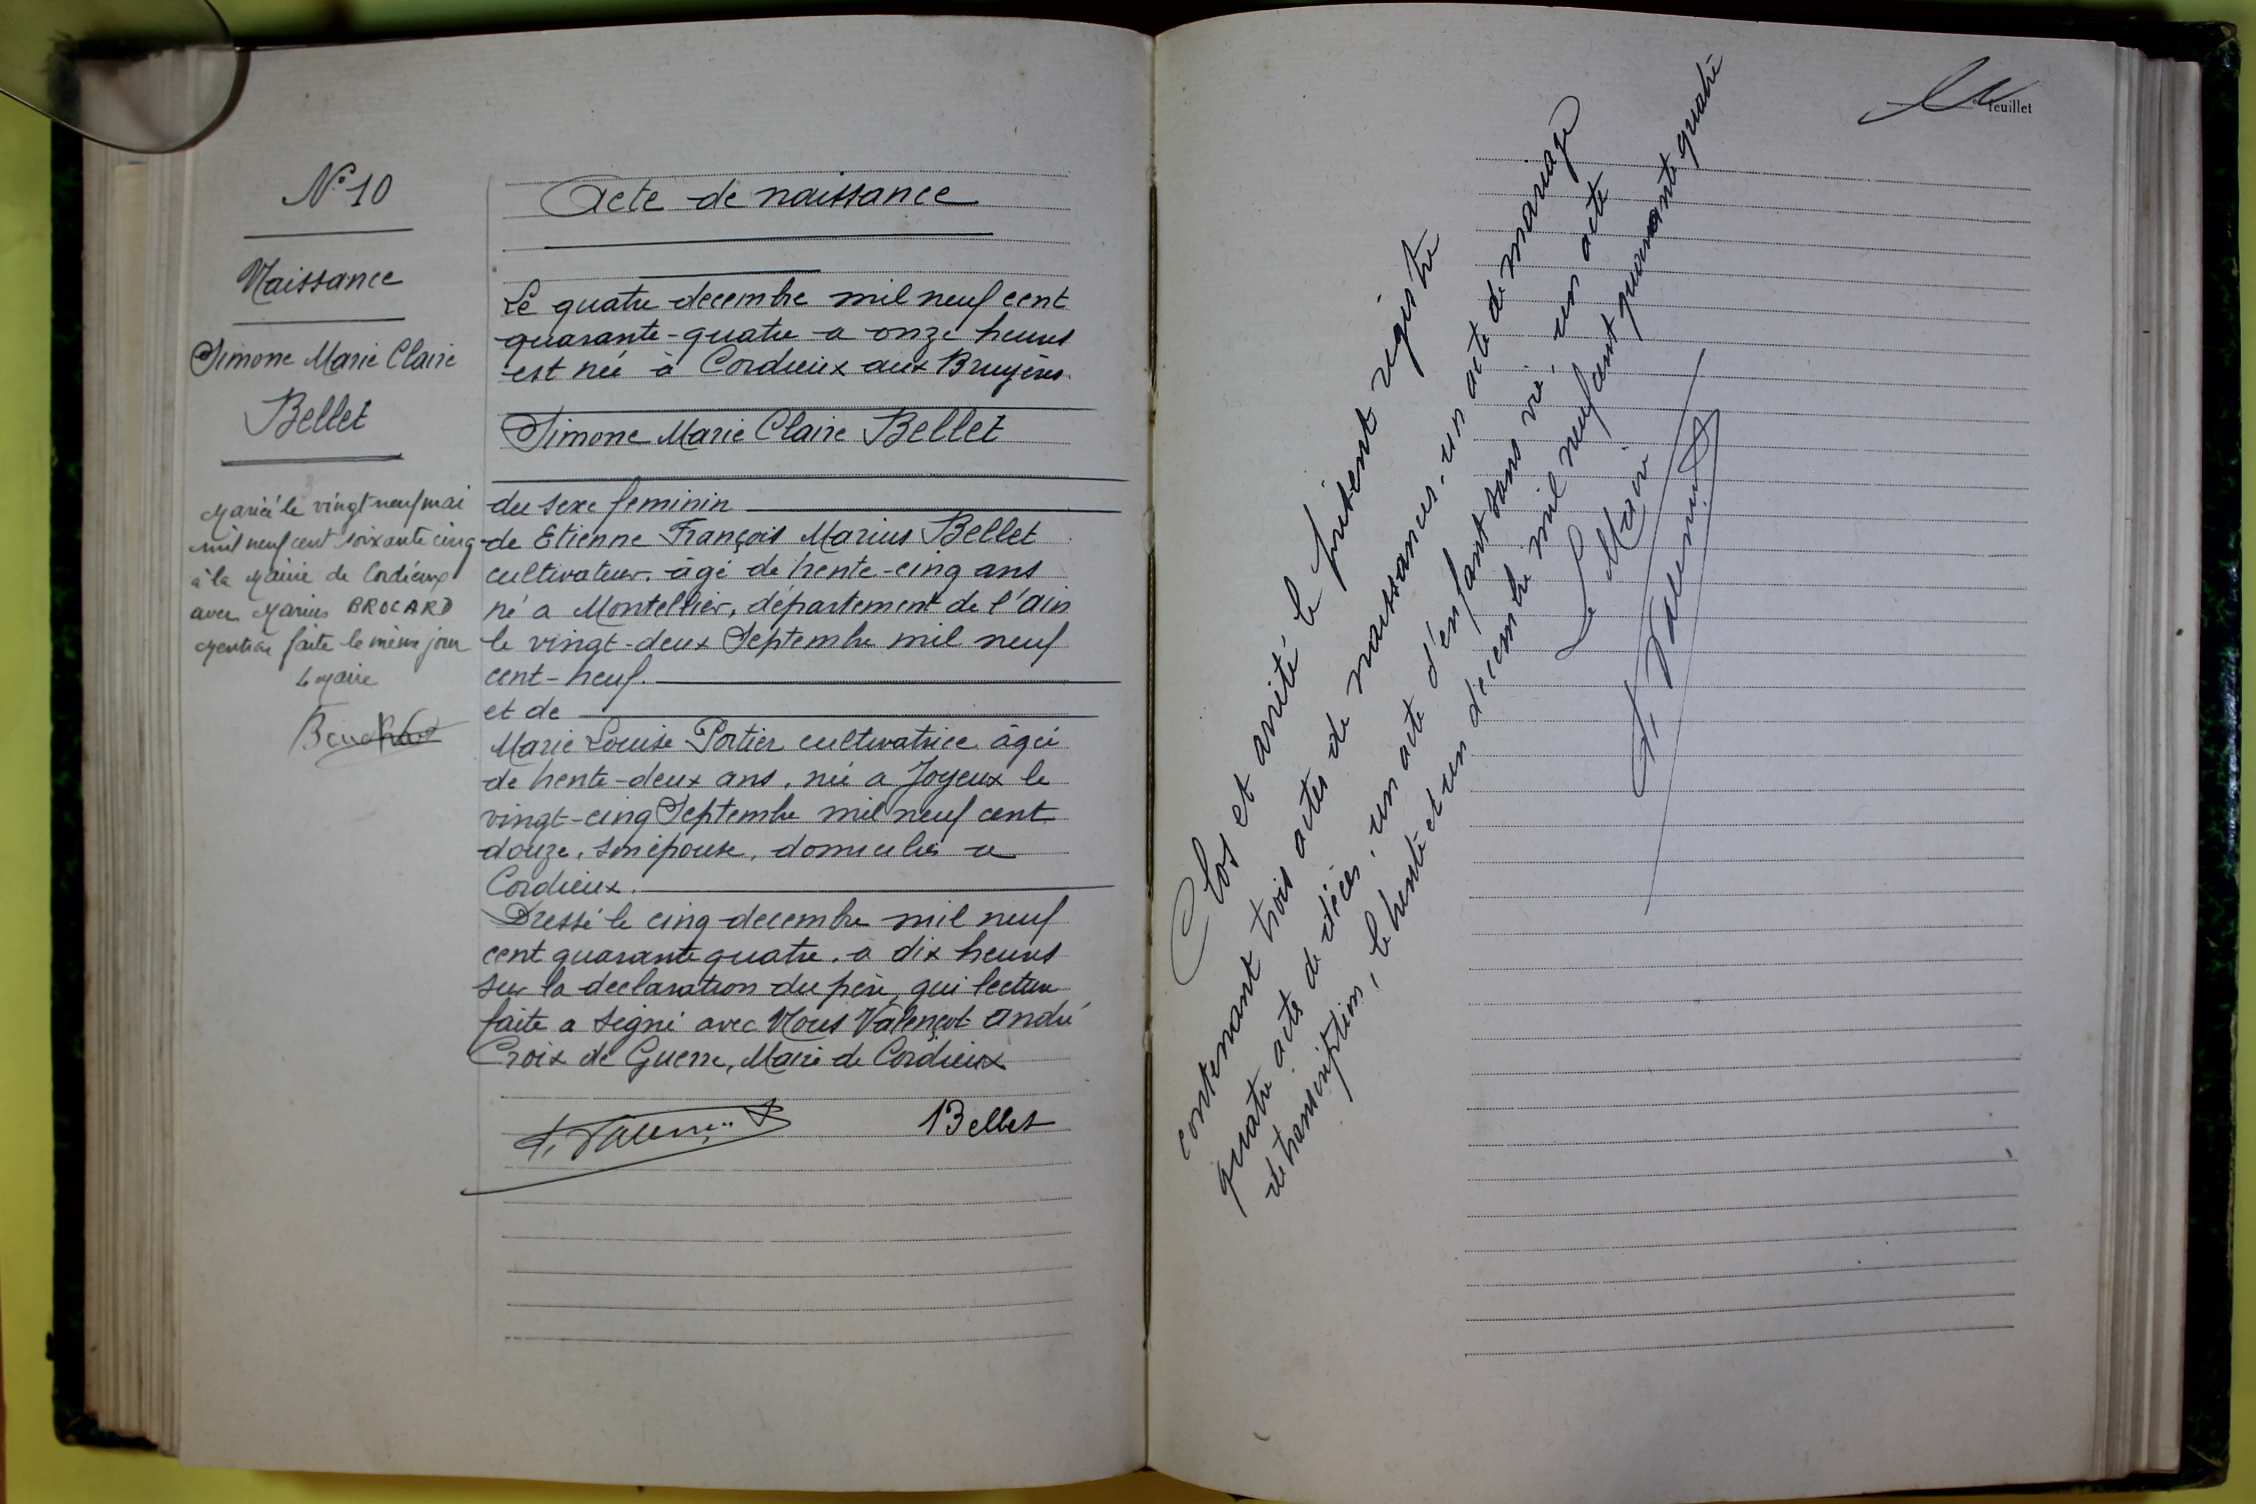 N° 10
Naissance
Simone Marie Claire
Bellet
Mariée le vingt neuf mai
mil neuf cent soixante cinq
à la Mairie de Cordieux
avec Marius BROCARD
Mention faite le même jour
Le Maire
Acte de naissance
Le quatre decembre mil neuf cent
quarante-quatre a onze heures
est née à Cordieux aux Bruyères.
Simone Marie Claire Bellet
du sexe feminin
de Etienne François Marius Bellet
cultivateur. âgé de trente-cinq ans
né a Montellier, département de l'Ain
le vingt-deux Septembre mil neuf
cent-neuf.
et de
Marie Louise Portier cultivatrice âgée
de trente-deux ans, née a Joyeux le
vingt-cinq Septembre mil neuf cent
douze, son épouse, domiciliés a
Cordieux.
Dressé le cinq decembre mil neuf
cent quarante quatre. a dix heures
sur la declaration du père, qui lecture
faite a signé avec Nous Valençot André
Croix de Guerre, Maire de Cordieux
Bellet
feuillet
Clos et arrêté le présent registre
contenant trois actes de naissances. un acte de mariage
quatre acte de décès, un acte d'enfant sans vie, un acte
de transcription, le trente et un décembre mil neuf cent quarante quatre
Le Maire